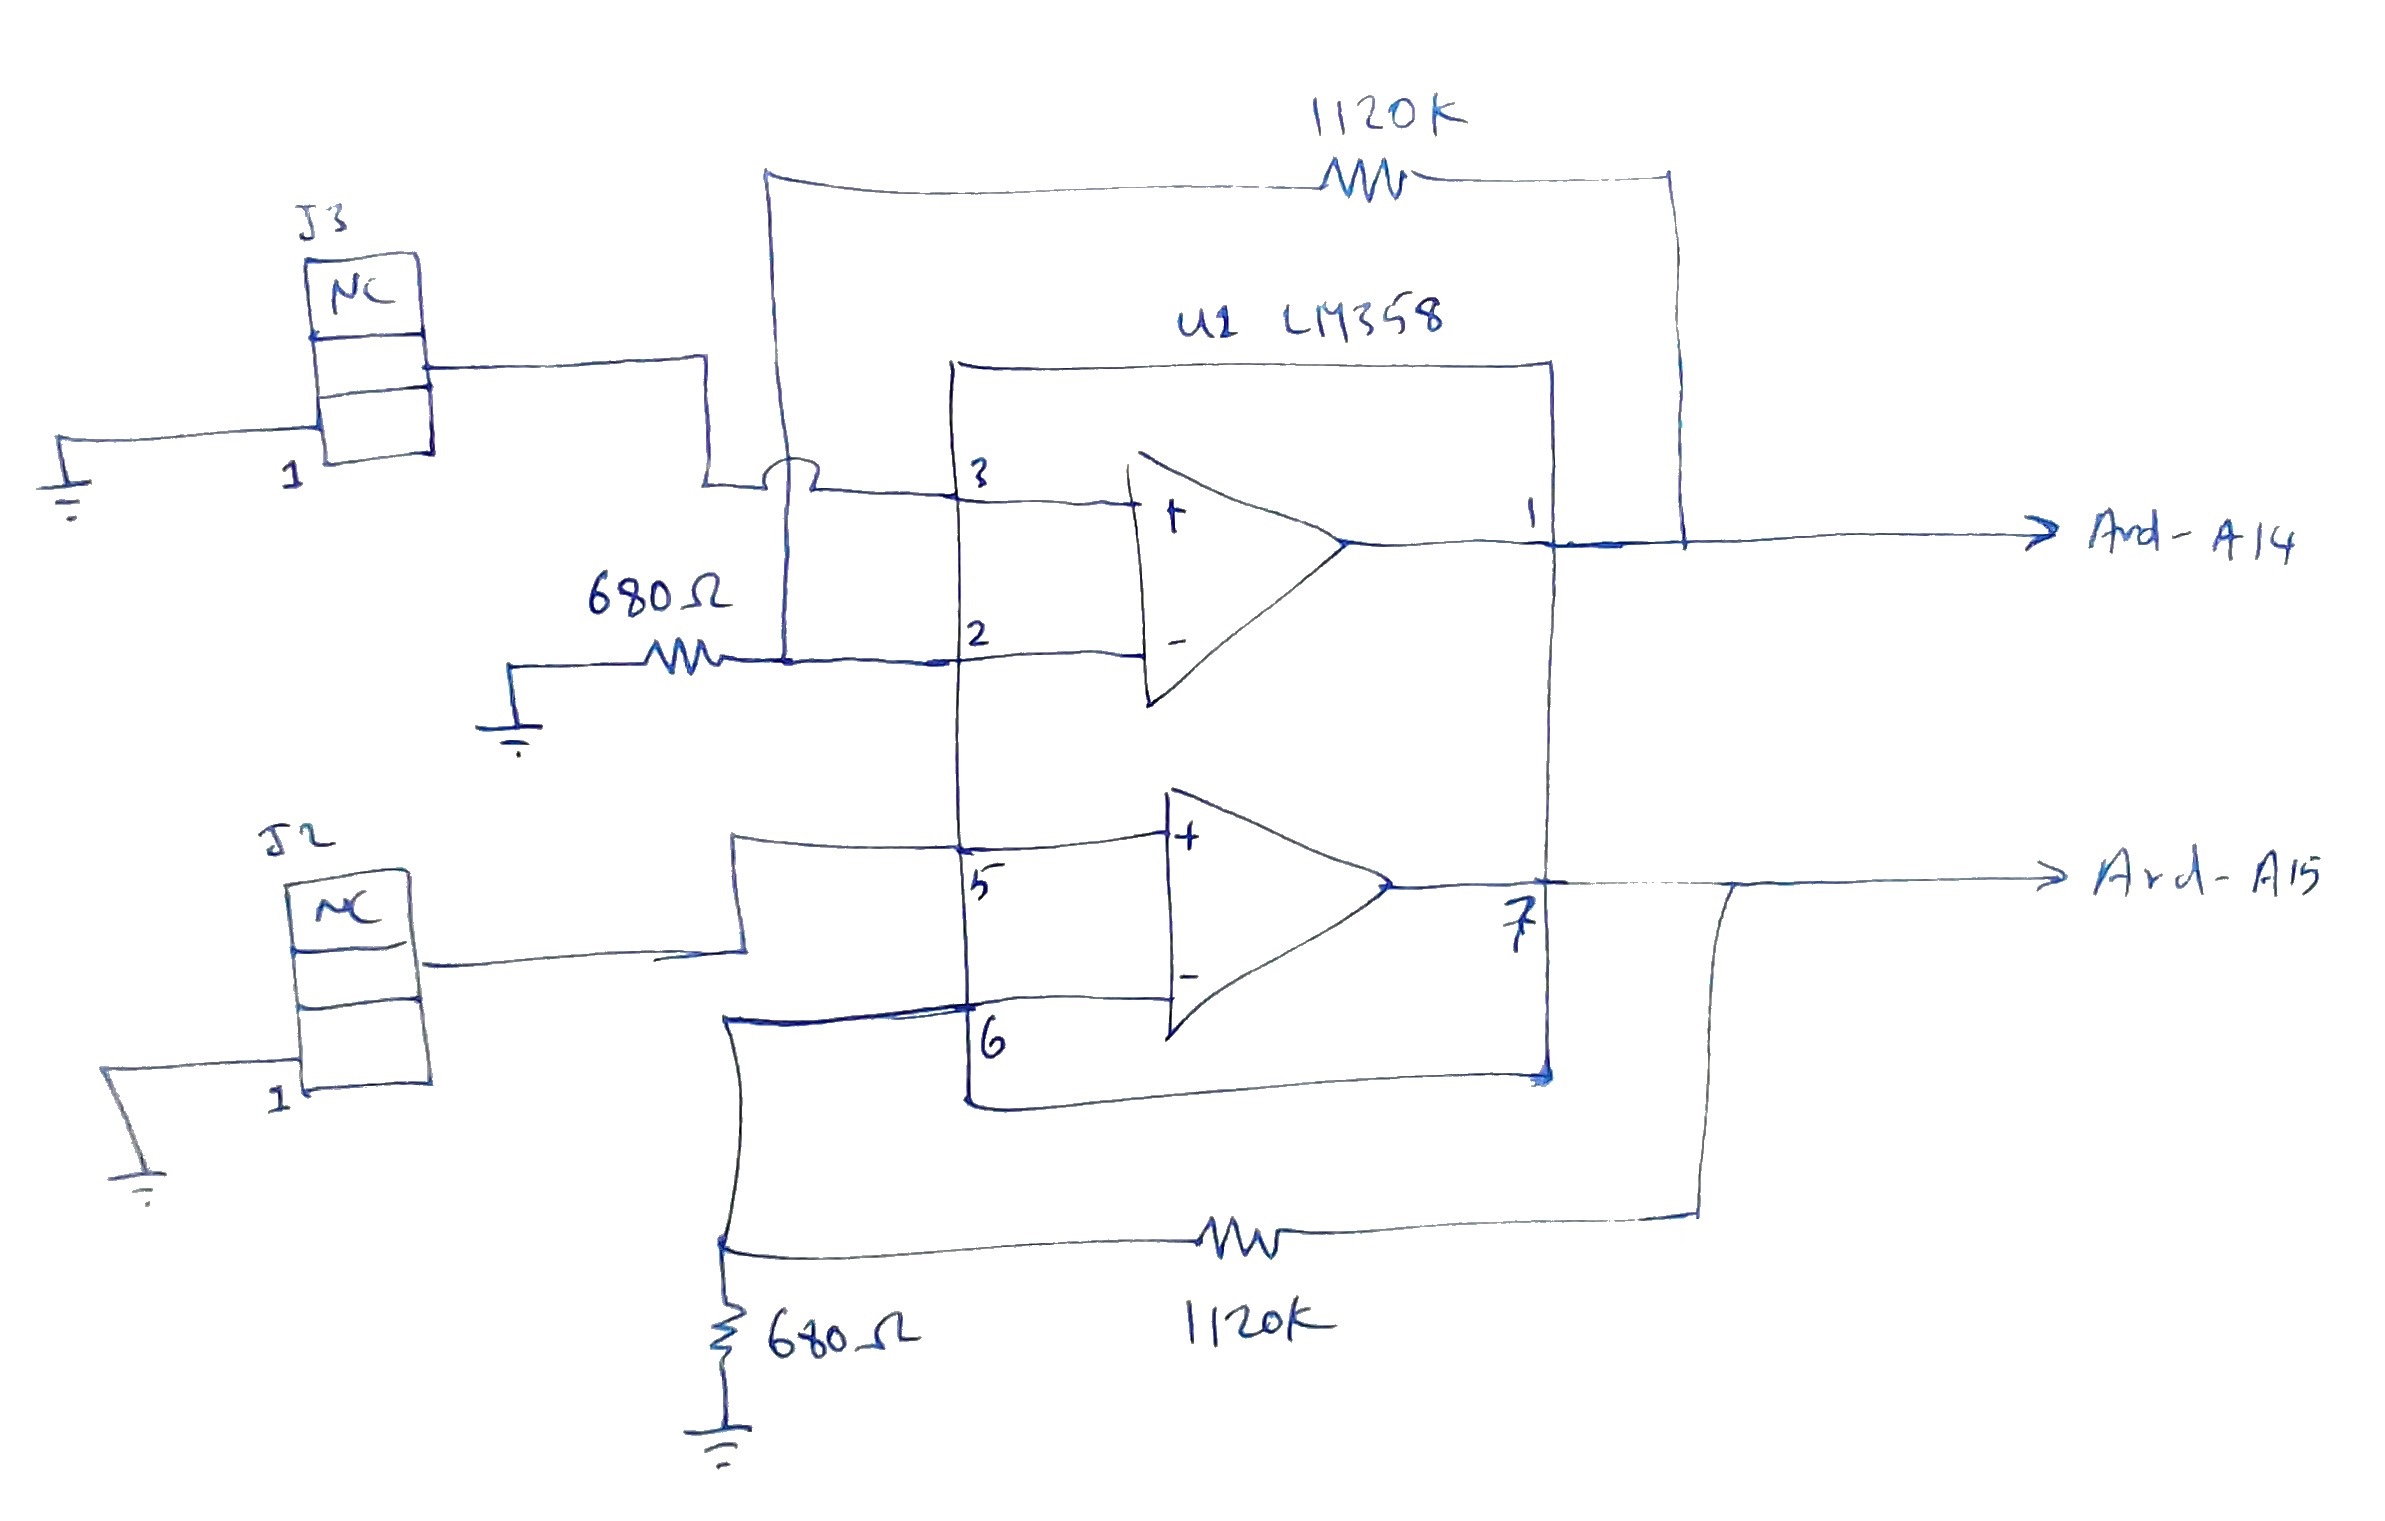 1120K
J3
NC
1
U1 LM358
3
+
1
Ard-A14
680Ω
2
-
J2
NC
1
5
+
7
Ard-A15
6
-
680Ω
1120K